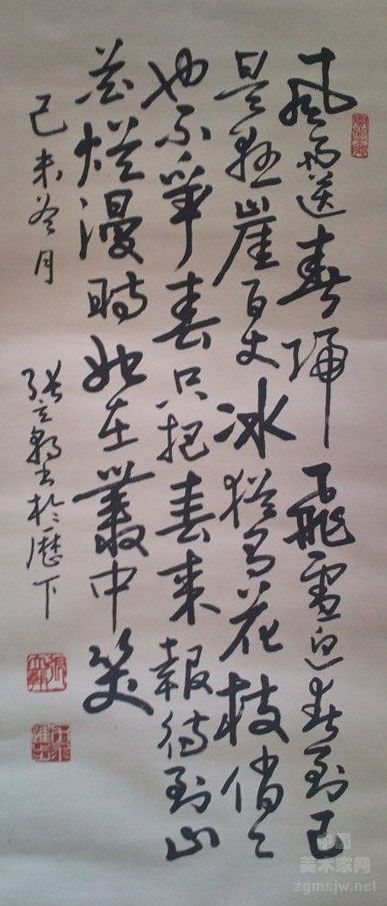 風雨送春歸飛雪迎春到已
是懸崖百丈冰猶有花枝俏々
也不争春只把春来報待到山
花爛漫時她在叢中笑
己未冬月
張立書於歷下
中国
美术家网
zgmsjw.net